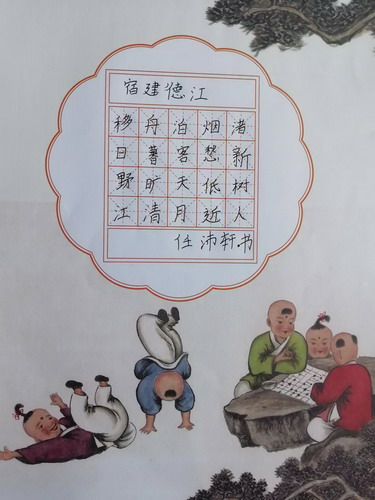 宿建德江
移舟泊烟渚
日暮客愁新
野旷天低树
江清月近人
任沛轩书